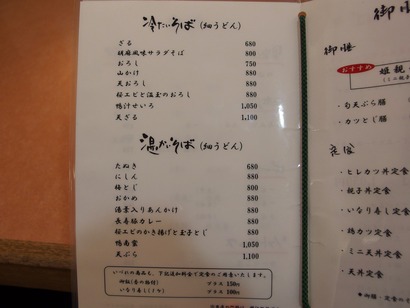 冷たいそば (細うどん)
ざる 680
胡麻風味サラダそば 800
おろし 750
山かけ 880
天おろし 880
桜エビと温玉のおろし 880
鴨汁せいろ 1,050
天ざる 1,100
温かいそば (細うどん)
たぬき 680
にしん 880
梅とじ 880
おかめ 880
湯葉入りあんかけ 880
長寿豚カレー 880
桜エビのかき揚げと玉子とじ 880
鴨南蛮 1,050
天ぷら 1,100
いづれの商品も、下記追加料金で定食のご用意いたします。
御飯(香の物付) プラス 150円
いなり寿し(2ケ) プラス 100円
御膳
おすすめ
・旬天ぷら膳
・カツとじ膳
定食
・ヒレカツ丼定食
・親子丼定食
・いなり寿し定食
・鶏カツ定食
・ミニ天丼定食
・天丼定食